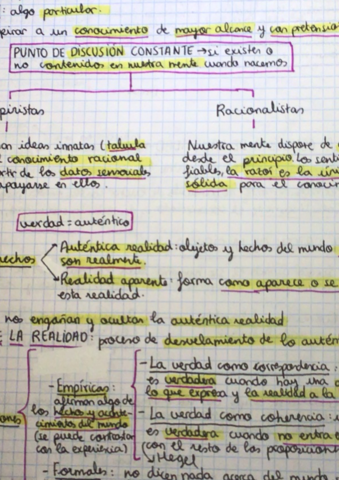 : algo particular.
pirar a un conocimiento de mayor alcance y con pretensio
PUNTO DE DISCUSIÓN CONSTANTE → si existen o
no contenidos en nuestra mente cuando nacemos
piristas
Racionalistas
an ideas innatas (tabula
l conocimiento racional
rtir de los datos sensoriales
apoyarse en ellos.
Nuestra mente dispone de
desde el principio. Los senti
fiables, la razón es la úni
sólida para el conocim
verdad = auténtico
echos
Auténtica realidad: objetos y hechos del mundo
son realmente.
Realidad aparente: forma como aparece o se
esta realidad.
nos engañan y ocultan la auténtica realidad
E LA REALIDAD: proceso de desvelamiento de lo autén
ones
- Empíricas:
afirman algo de
los hechos y aconte-
cimientos del mundo
(se puede contrastar
con la experiencia)
- La verdad como correspondencia:
es verdadera cuando hay una a
lo que expresa y la realidad a la
- La verdad como coherencia: u
es verdadera cuando no entra e
(con el resto de las proposiciones
Hegel
- Formales: no dicen nada acerca del mundo